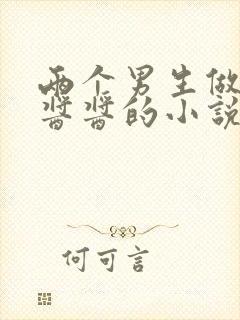 两个男生做
酱酱的小說
何可言